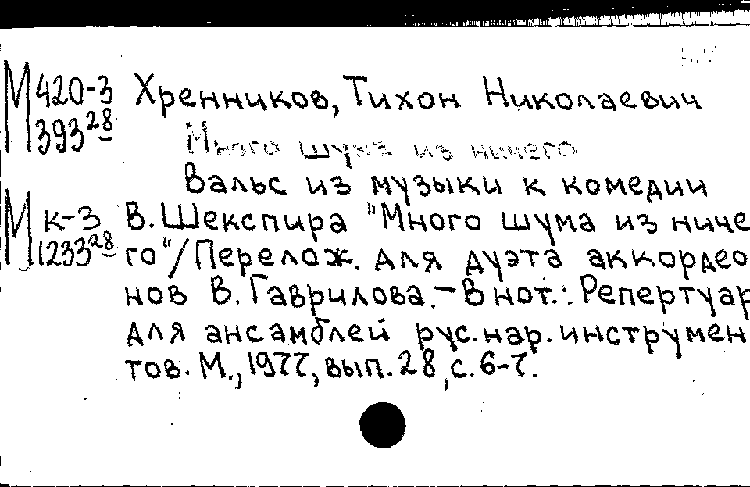 М 420-3 Хренников, Тихон Николаевич
393 28 Много шума из ничего
Вальс из музыки к комедии
М к-3 В. Шекспира "Много шума из ниче
1233 28 го"/Перелож. для дуэта аккордео
нов В. Гаврилова.-В нот.: Репертуар
для ансамблей рус. нар. инструмен
тов. М., 1977, вып. 28, с. 6-7.